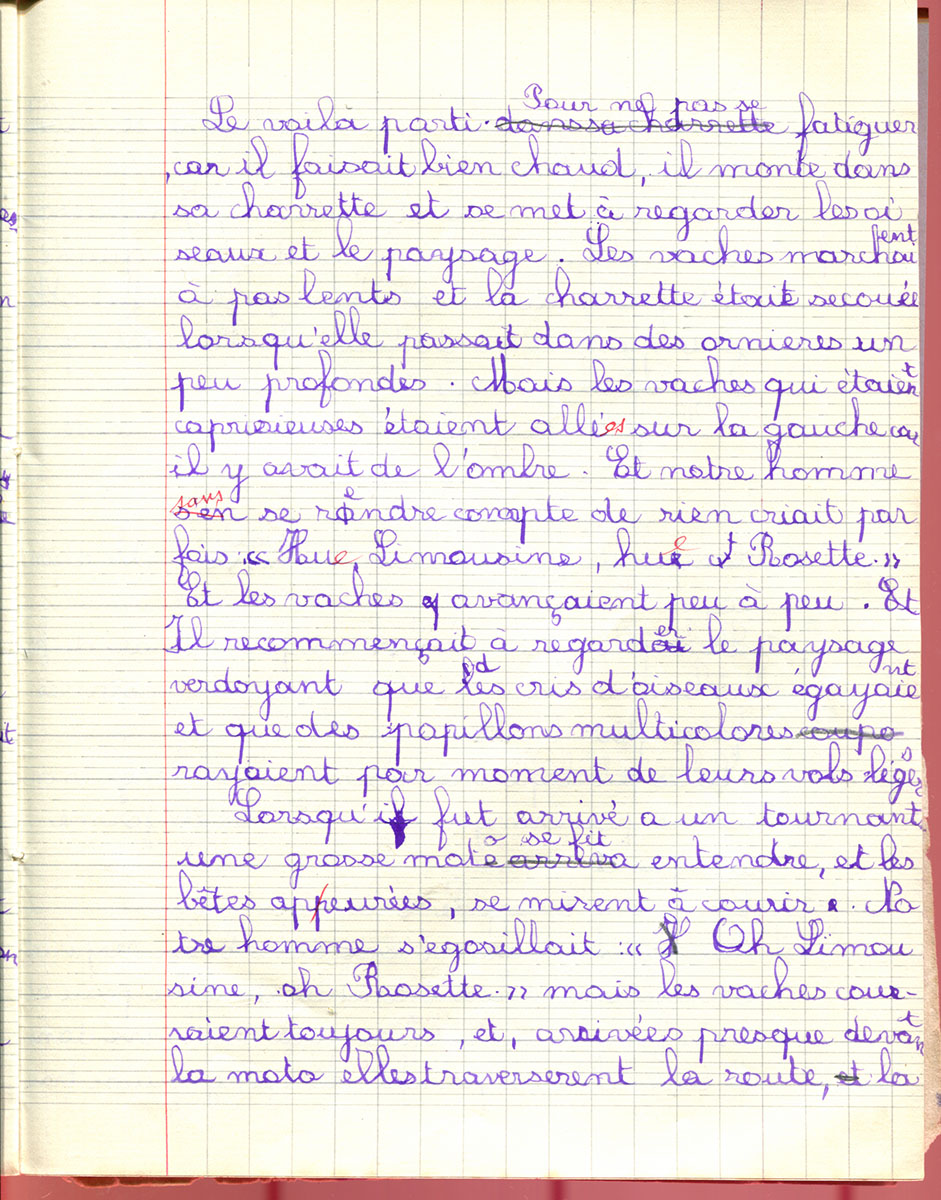 Le voilà parti. dans sa charrette Pour ne pas se fatiguer
, car il faisait bien chaud, il monte dans
sa charrette et se met à regarder les oi
seaux et le paysage. Les vaches marchaient
à pas lents et la charrette était secouée
lorsqu'elle passait dans des ornieres un
peu profondes. Mais les vaches qui étaient
capricieuses étaient allées sur la gauche car
il y avait de l'ombre. Et notre homme
sans se rendre compte de rien criait par
fois : « Hue Limousine, hue et Rosette. »
Et les vaches avançaient peu à peu. Et
Il recommençait à regarder le paysage
verdoyant que des cris d'oiseaux égayaient
et que des papillons multicolores
rayaient par moment de leurs vols légers
Lorsqu'il fut arrivé a un tournant
une grosse moto arriva se fit entendre, et les
bêtes appeurées, se mirent à courir. No
tre homme s'egosillait : « Oh Limou
sine, oh Rosette. » mais les vaches cou-
raient toujours, et, arrivées presque devant
la moto elles traverserent la route, et la